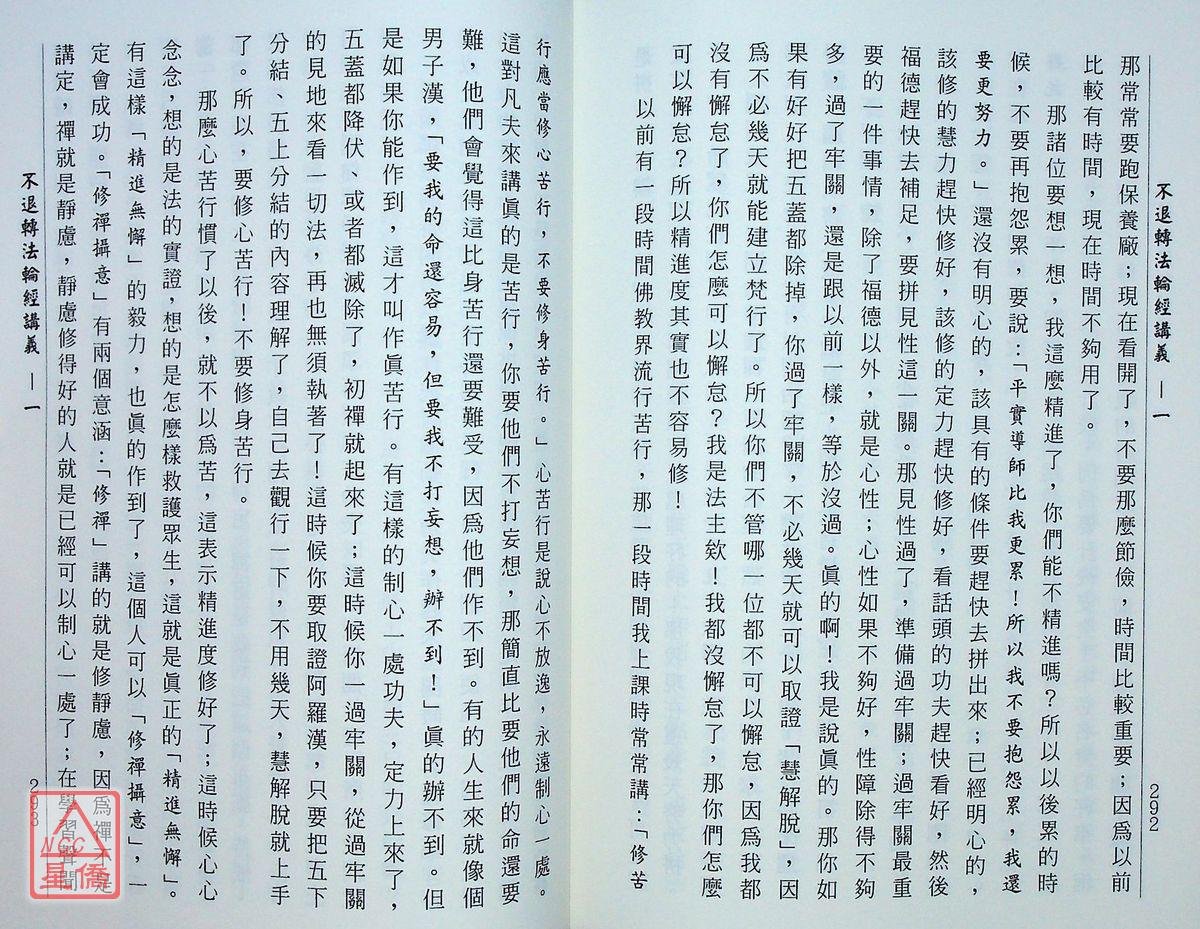 不退轉法輪經講義 — 一
292
那常常要跑保養廠；現在看開了，不要那麼節儉，時間比較重要；因為以前
比較有時間，現在時間不夠用了。
那諸位要想一想，我這麼精進了，你們能不精進嗎？所以以後累的時
候，不要再抱怨累，要說：「平實導師比我更累！所以我不要抱怨累，我還
要更努力。」還沒有明心的，該具有的條件要趕快去拼出來；已經明心的，
該修的慧力趕快修好，該修的定力趕快修好，看話頭的功夫趕快看好，然後
福德趕快去補足，要拼見性這一關。那見性過了，準備過牢關；過牢關最重
要的一件事情，除了福德以外，就是心性；心性如果不夠好，性障除得不夠
多，過了牢關，還是跟以前一樣，等於沒過。真的啊！我是說真的。那你如
果有好好把五蓋都除掉，你過了牢關，不必幾天就可以取證「慧解脫」，因
為不必幾天就能建立梵行了。所以你們不管哪一位都不可以懈怠，因為我都
沒有懈怠了，你們怎麼可以懈怠？我是法主欸！我都沒懈怠了，那你們怎麼
可以懈怠？所以精進度其實也不容易修！
以前有一段時間佛教界流行苦行，那一段時間我上課時常常講：「修苦
行應當修心苦行，不要修身苦行。」心苦行是說心不放逸，永遠制心一處。
這對凡夫來講真的是苦行，你要他們不打妄想，那簡直比要他們的命還要
難，他們會覺得這比身苦行還要難受，因為他們作不到。有的人生來就像個
男子漢，「要我的命還容易，但要我不打妄想，辦不到！」真的辦不到。但
是如果你能作到，這才叫作真苦行。有這樣的制心一處功夫，定力上來了，
五蓋都降伏、或者都滅除了，初禪就起來了；這時候你一過牢關，從過牢關
的見地來看一切法，再也無須執著了！這時候你要取證阿羅漢，只要把五下
分結、五上分結的內容理解了，自己去觀行一下，不用幾天，慧解脫就上手
了。所以，要修心苦行！不要修身苦行。
那麼心苦行慣了以後，就不以為苦，這表示精進度修好了；這時候心心
念念，想的是法的實證，想的是怎麼樣救護眾生，這就是真正的「精進無懈」。
有這樣「精進無懈」的毅力，也真的作到了，這個人可以「修禪攝意」，一
定會成功。「修禪攝意」有兩個意涵：「修禪」講的就是修靜慮，因為禪不是
講定，禪就是靜慮，靜慮修得好的人就是已經可以制心一處了；在學習聲聞
不退轉法輪經講義 — 一
293
NCC
星僑